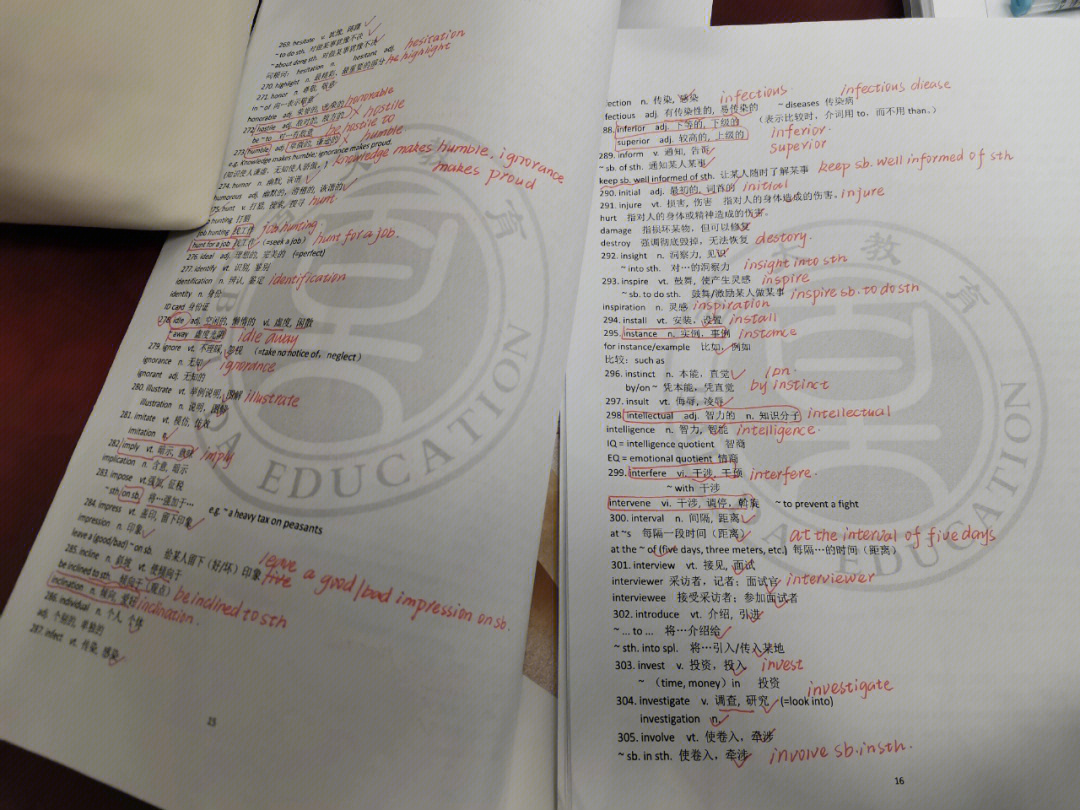 269. hesitate v. 犹豫, 踌躇
~ to do sth. 对做某事犹豫不决
~ about doing sth. 对做某事犹豫不决
同根词: hesitation n. hesitant adj. hesitation
270. highlight n. 最精彩、最重要的部分 highlight
271. honor n. 尊敬, 敬意
in ~ of 向…表示敬意
honorable adj. 荣誉的, 光荣的 honorable
272. hostile adj. 敌对的, 敌方的 × hostile
be ~ to 对…有敌意 be hostile to
273. humble adj. 卑微的, 谦虚的 × humble
e.g. Knowledge makes humble, ignorance makes proud.
(知识使人谦虚, 无知使人骄傲。) knowledge makes humble, ignorance
makes proud
274. humor n. 幽默, 诙谐
humorous adj. 幽默的, 滑稽的, 诙谐的
275. hunt v. 打猎, 搜索, 搜寻 hunt
hunting 打猎
job hunting 找工作 job hunting
hunt for a job 找工作 (=seek a job) hunt for a job.
276. ideal adj. 理想的, 完美的 (=perfect)
277. identify vt. 识别, 鉴别
identification n. 辨认, 鉴定 identification
identity n. 身份
ID card 身份证
278. idle adj. 空闲的, 懒惰的 vi. 虚度, 闲散
away 虚度光阴 idle away
279. ignore vt. 不理睬, 忽视 (=take no notice of, neglect)
ignorance n. 无知 ignorance
ignorant adj. 无知的
280. illustrate vt. 举例说明, 图解 illustrate
illustration n. 说明, 图解
281. imitate vt. 模仿, 仿效
imitation n.
282. imply vt. 暗示, 意味 imply
implication n. 含意, 暗示
283. impose vt. 强加, 征税
~ sth/on sb. 将…强加于… e.g. ~ a heavy tax on peasants
284. impress vt. 盖印, 留下印象
impression n. 印象
leave a (good/bad) ~ on sb. 给某人留下 (好/坏) 印象 leave a good/bad impression on sb.
285. incline n. 斜坡 vt. 使倾向于
be inclined to sth. 倾向于 (观点) be inclined to sth
inclination n. 倾向, 爱好 inclination
286. individual n. 个人, 个体
adj. 个别的, 单独的
287. infect vt. 传染, 感染
15
EDUCATION
fection n. 传染, 感染 infectious infectious diease
fectious adj. 有传染性的, 易传染的 ~ diseases 传染病
88. inferior adj. 下等的, 下级的 (表示比较时, 介词用 to, 而不用 than。)
superior adj. 较高的, 上级的 inferior
superior
289. inform v. 通知, 告诉
~ sb. of sth. 通知某人某事
keep sb. well informed of sth. 让某人随时了解某事 keep sb. well informed of sth
290. initial adj. 最初的, 词首的 initial
291. injure vt. 损害, 伤害 指对人的身体造成的伤害。 injure
hurt 指对人的身体或精神造成的伤害。
damage 指损坏某物, 但可以修复
destroy 强调彻底毁掉, 无法恢复 destory
292. insight n. 洞察力, 见识
~ into sth. 对…的洞察力 insight into sth
293. inspire vt. 鼓舞, 使产生灵感 inspire
~ sb. to do sth. 鼓舞/激励某人做某事 inspire sb. to do sth
inspiration n. 灵感 inspiration
294. install vt. 安装, 设置 install
295. instance n. 实例, 事例 instance
for instance/example 比如, 例如
比较: such as
296. instinct n. 本能, 直觉
by/on ~ 凭本能, 凭直觉 by instinct
297. insult vt. 侮辱, 凌辱
298. intellectual adj. 智力的 n. 知识分子 intellectual
intelligence n. 智力, 智能 intelligence
IQ = intelligence quotient 智商
EQ = emotional quotient 情商
299. interfere vi. 干涉, 干预 interfere
~ with 干涉
intervene vi. 干涉, 调停, 斡旋 ~ to prevent a fight
300. interval n. 间隔, 距离
at ~s 每隔一段时间 (距离) at the interval of five days
at the ~ of (five days, three meters, etc.) 每隔…的时间 (距离)
301. interview vt. 接见, 面试
interviewer 采访者, 记者; 面试官 interviewer
interviewee 接受采访者; 参加面试者
302. introduce vt. 介绍, 引进
~ ... to ... 将…介绍给
~ sth. into spl. 将…引入/传入某地
303. invest v. 投资, 投入 invest
~ (time, money) in 投资
304. investigate v. 调查, 研究 (=look into) investigate
investigation n.
305. involve vt. 使卷入, 牵涉
~ sb. in sth. 使卷入, 牵涉 involve sb. in sth.
16
EDUCATION